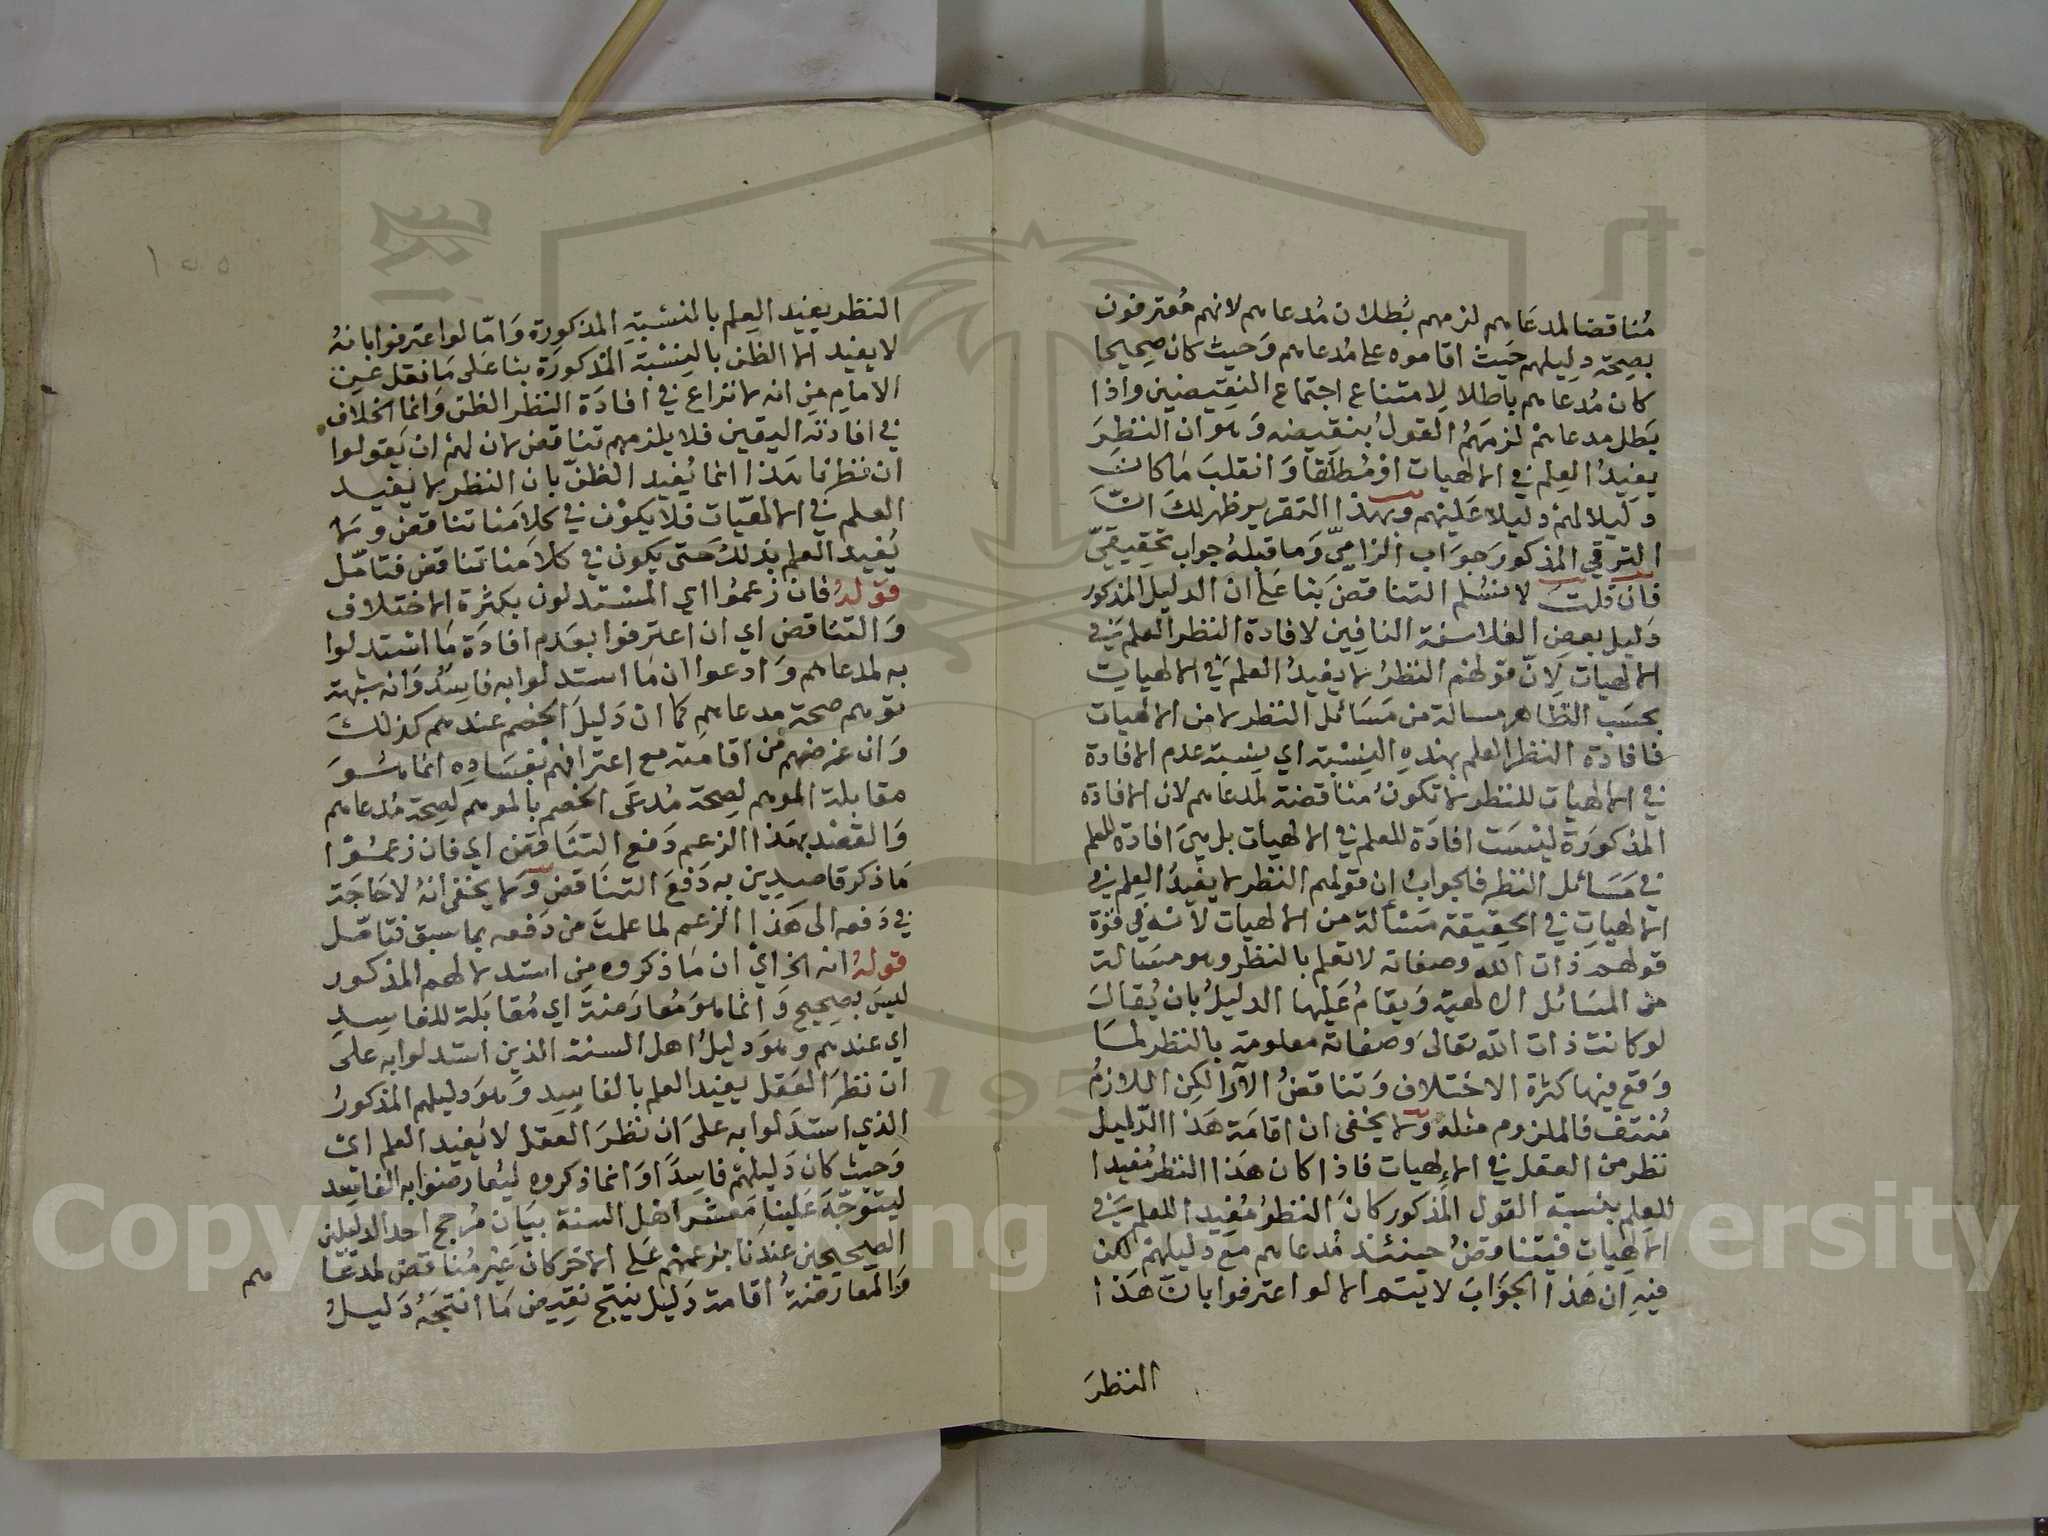 مُناقضا لمدعاهم لزمهم بُطلان مُدعاهم لانهم مُعترفون
بصِحة دليلهم حَيث اقاموه على مُدعاهم وَحيث كان صحِيحا
كان مُدعاهم باطلا لامتناع اجتماع النقيضين واذا
بَطل مدعاهم لزمهُم القولُ بنقيضه وَهو ان النظرَ
يفيدُ العِلم في الالهيات اوْ مُطلقا وَانقلبَ مَا كان
دليلا لهم دليلا عَليهم وبهذا التقرير ظهر لكَ انّ
الترقي المذكور جوَاب الزاميّ وَما قبلهُ جواب تحقيقيّ
فان قلتَ لا نسُلم التناقضَ بنا عَلى ان الدليل المذكور
دَليل بعض الفلاسفة النافِين لافادة النظر العلم في
الالهيات لِانّ قولهم النظرُ لا يفيدُ العلمَ في الالهيات
بحسَب الظاهر مسالة من مَسَائل النظر لا من الالهيات
فافادة النظر العلم بهذهِ النِسْبة اي بنسبة عدم الافادة
في الالهيات للنظر لا تكونُ مناقضة لمدعاهم لان الافادة
المذكورَة ليْسَت افادَة للعلم في الالهيات بل هيَ افادة للعلم
في مَسَائل النظر فالجوابُ ان قولهم النظر لا يفيدُ العِلم في
الالهياتِ في الحقيقة مَسْألة من الالهيات لانه في قوّة
قولهم ذات الله وصفاته لا تعلم بالنظر وهو مسَالة
من المسَائل الالهية وَيقامُ عَليها الدليلُ بان يُقالَ
لو كانت ذات الله تعالى وَصفاته معلومة بالنظر لمَا
وَقع فيها كثرة الاختلاف وَتناقضُ الآرا لكِن اللازمُ
مُنتف فالملزوم مثله وَلا يخفى ان اقامَة هَذا الدّليل
نظر من العقل في الالهيات فاذا كان هَذا النظر مُفيدا
للعِلم بنسبة القول المذكور كانَ النظرُ مُفيدا للعلم في
الالهيات فيتناقضُ حينئذ مُدعاهم معَ دليلهم لكن
فيهِ ان هَذا الجوَابَ لا يتم الا لو اعترفوا بانّ هَذا
النظرَ
١٥٥
النظر يفيد العِلم بالنسْبةِ المذكورة وَامّا لو اعترفوا بانهُ
لا يفيد الا الظن بالنِسْبة المذكورَة بنا عَلى مَا نقل عَن
الامام مِن انه لا نزاع في افادَة النظر الظن وَانما الخلاف
في افادته اليقين فلا يلزمهم تناقض لان لهم ان يَقولوا
ان نظرنا هَذا انما يُفيد الظنّ بان النظر لا يُفيد
العلم في الالهيّات فلا يكوْن في كلامَنا تناقض وَلا
يُفيد العلم بذلكَ حَتى يكون في كلامنا تناقض فتامّل
قوْلهُ فان زعمُوا اي المسْتدلون بكثرَة الاختلاف
وَالتناقض اي ان اعترفوا بعَدم افادَة مَا اسْتدلوا
به لمدعاهم وَادعوا ان مَا استدلوا به فاسِدٌ وَانه شبهة
توهم صحة مدعاهم كما ان دَليلَ الخصم عندهم كذلكَ
وَان غرضهم من اقامته مع اعترافهم بفسَاده انما هُوَ
مقابلة الموهم لِصحة مُدعَى الخصم بالموهم لِصحة مُدعاهم
وَالقصْد بهَذا الزعم دَفع التنَاقض اي فان زعمُوا
مَا ذكر قاصدِين به دَفعَ التنَاقض وَلا يخفى انهُ لا حَاجَة
في دَفعه الى هَذا الزعم لما علمتَ من دَفعه بما سبق فتامّل
قولهُ انه الخ ايْ ان مَا ذكروه مِن استدلالهم المذكور
ليسَ بصحِيح وَانما هوَ مُعارَضة اي مُقابَلة للفاسِدِ
اي عندهم وهوَ دليلُ اهل السنة الذين استدلوا به على
ان نظرَ العَقل يفيد العلم بالفاسِدِ وَهوَ دليلهم المذكورُ
الذي استدَلوا به علىَ ان نظرَ العقل لا يُفيد العلم اي
وَحيث كان دَليلهمْ فاسِدًا وَانما ذكروه ليُعارضوا به الفاسد
ليتوَجّهَ عَلينا مَعشر اهْل السنة بيَان مُرجح احد الدليلين
الصحِيحين عندنا بزعمهم عَلى الاخر كان غير مُناقض لمدعَا
هم
وَالمعارضةُ اقامة دَليل ينتج نقِيض مَا انتجَهُ دَليلُ